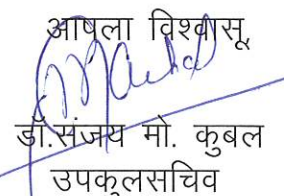 आपला विश्वासू,
डॉ.संजय मो. कुबल
उपकुलसचिव